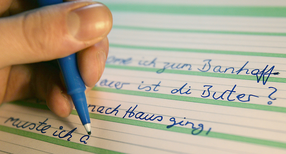 me ich zum Banhoff
er ist di Buter ?
nach Haus ging,
muste ich d